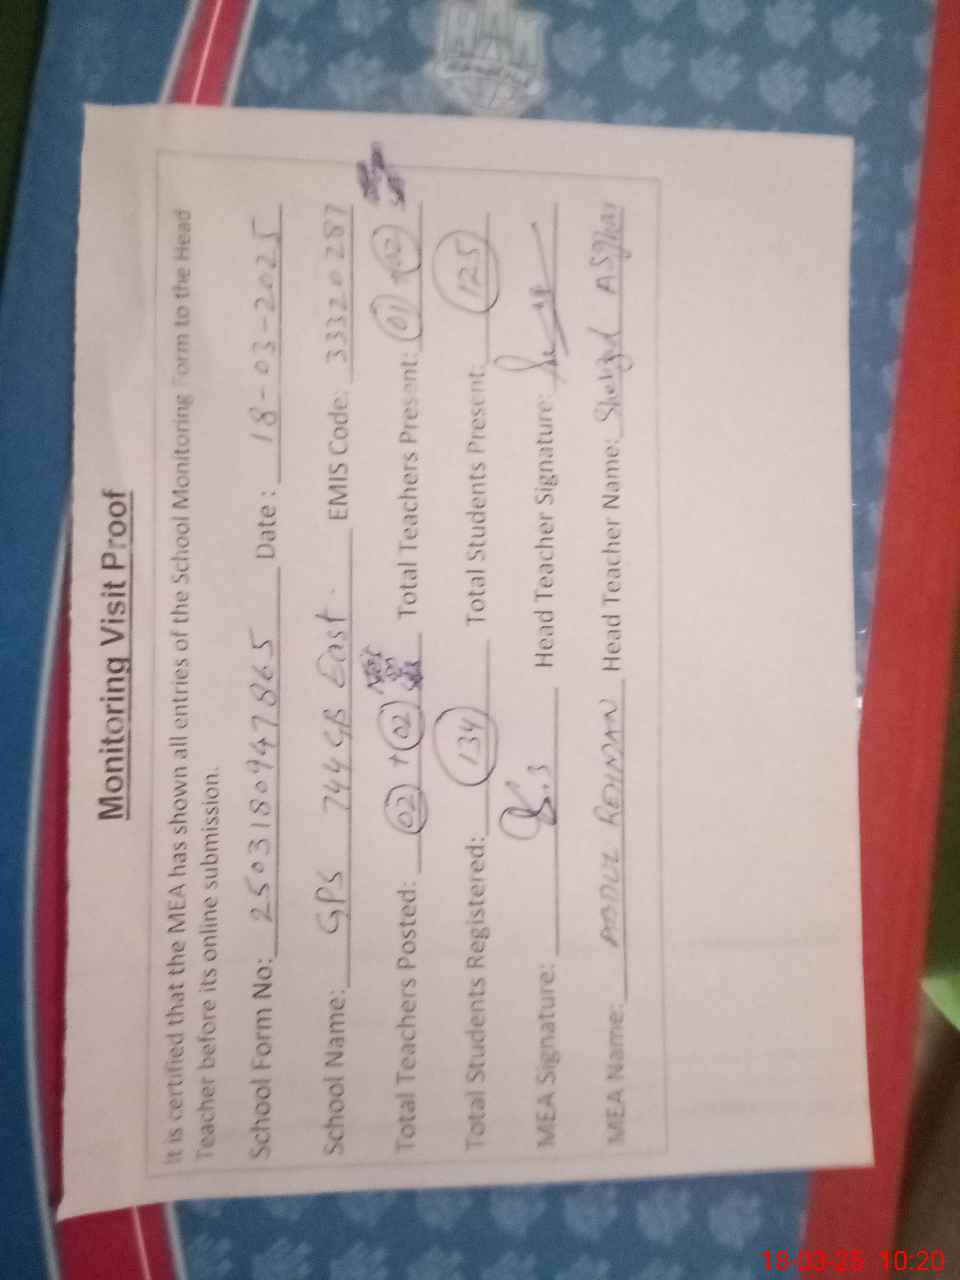 Monitoring Visit Proof
It is certified that the MEA has shown all entries of the School Monitoring Form to the Head
Teacher before its online submission.
School Form No: 2503180947865 Date: 18-03-2025
School Name: GPS 744 GB East. EMIS Code: 33320287
Total Teachers Posted: 02 + 02 Total Teachers Present: 01 + 02
Total Students Registered: 134 Total Students Present: 125
MEA Signature: Head Teacher Signature:
MEA Name: ABDUL REHMAN Head Teacher Name: Shehzad ASghar
18-03-25 10:20